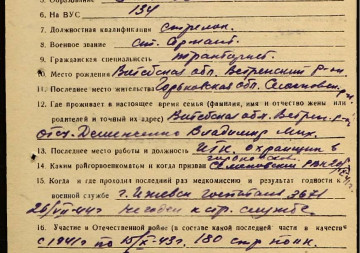 6. На ВУС 134
7. Должностная квалификация стрелок.
8. Военное звание ст. сержант.
9. Гражданская специальность
10. Место рождения Витебская обл. Ветринский р-н.
11. Последнее место жительства Горьковская обл.
12. Где проживает в настоящее время семья (фамилия, имя и отчество жены или
родителей и точный их адрес) Витебская обл. Ветрин. р-н
отец Деменченко Владимир Мих.
13. Последнее место работы и должность охранник в
14. Каким райгорвоенкоматом и когда призван
15. Когда и где проходил последний раз медкомиссию и результат годности к
военной службе г. Ижевск госпиталь 3671
26/VII-44г не годен к стр. службе.
16. Участие в Отечественной войне (в составе какой последней части и в качестве
с 1941г по 15/X-43г. 180 стр полк.